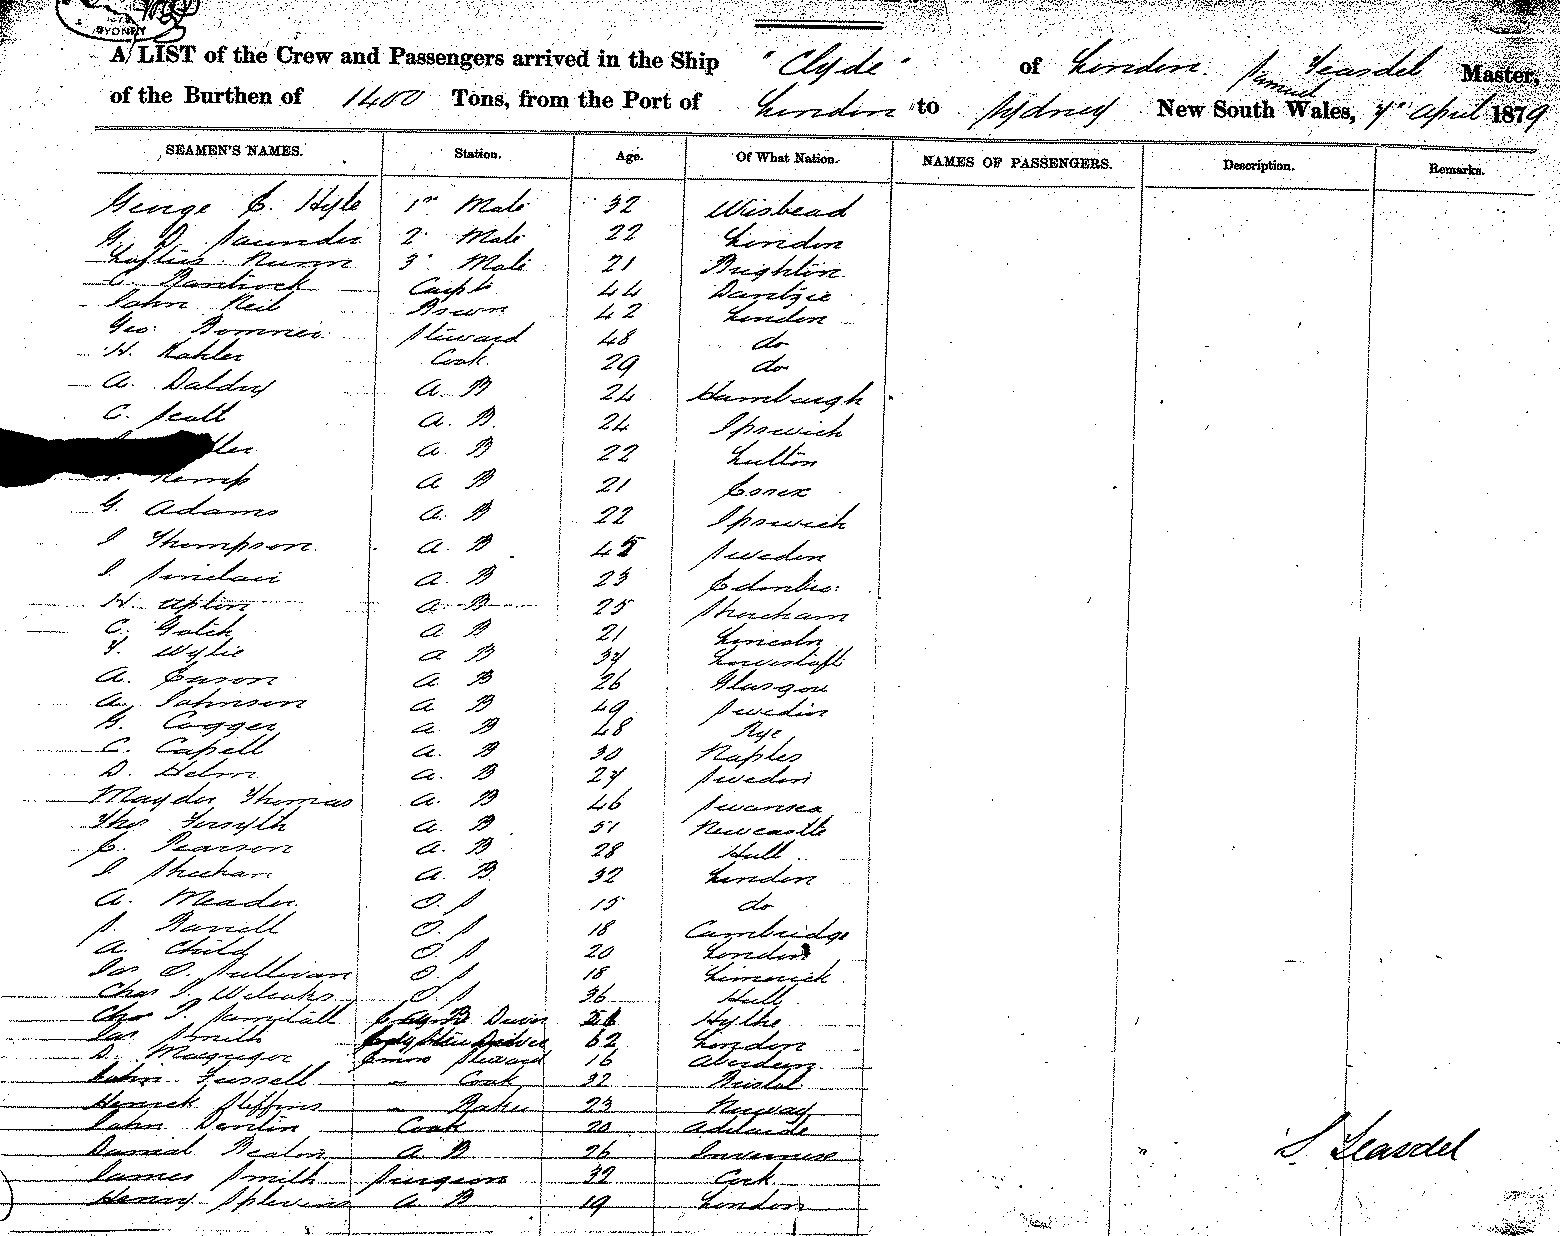 SYDNEY
A LIST of the Crew and Passengers arrived in the Ship "Clyde" of London Samuel Teasdel Master,
of the Burthen of 1400 Tons, from the Port of London to Sydney New South Wales, 7" April 1879
SEAMEN'S NAMES. Station. Age. Of What Nation. NAMES OF PASSENGERS. Description. Remarks.
George C. Hyle 1" Mate 32 Wisbead
G. D. Saunder 2" Mate 22 London
Loftus Nunn 3" Mate 21 Brighton
C. Carpt 44 Dantzic
John Neil Boswn 42 London
Geo. Steward 48 do
H. Kahler Cook 29 do
A. Daldry A. B 24 Hamburgh
C. Scott A. B. 24 Ipswich
A B 22 Luton
Kemp A B 21 Essex
G. Adams A. B 22 Ipswich
J Thompson A. B Sweden
J. Sinclair A. B 23 Edinbro
H. Upton A B 25 Shoreham
C. Gotch A B 21 Lincoln
T. Wylie A B 37 Lowestoft
A. Eason A B 26 Glasgow
A. Johnson A B 49 Sweden
G. Cogger A B 48 Rye
C. Capell A. B 30 Naples
D. Helm A. B 27 Sweden
Thomas A. B 46 Swansea
Thos Forsyth A. B 51 Newcastle
C. Pearson A. B 28 Hull
J Sheehan A. B 32 London
A. Meader O. S 15 do
S. O. S 18 Cambridge
A. Child O. S 20 London
Jas O. Sullivan O. S 18 Limerick
Chas J. Wilcocks O. S 36 Hull
Chas J. Hythe
Jas Smith 62 London
D. Macgregor Steward 16 Aberdeen
John Fussell " Cook 32 Bristol
" Baker 23 Norway
John Devlin Cook 20 Adelaide
Daniel Beaton A B 26 Inverness
James Smith Surgeon 32 Cork
Henry Stevens A B 19 London
S. Teasdel